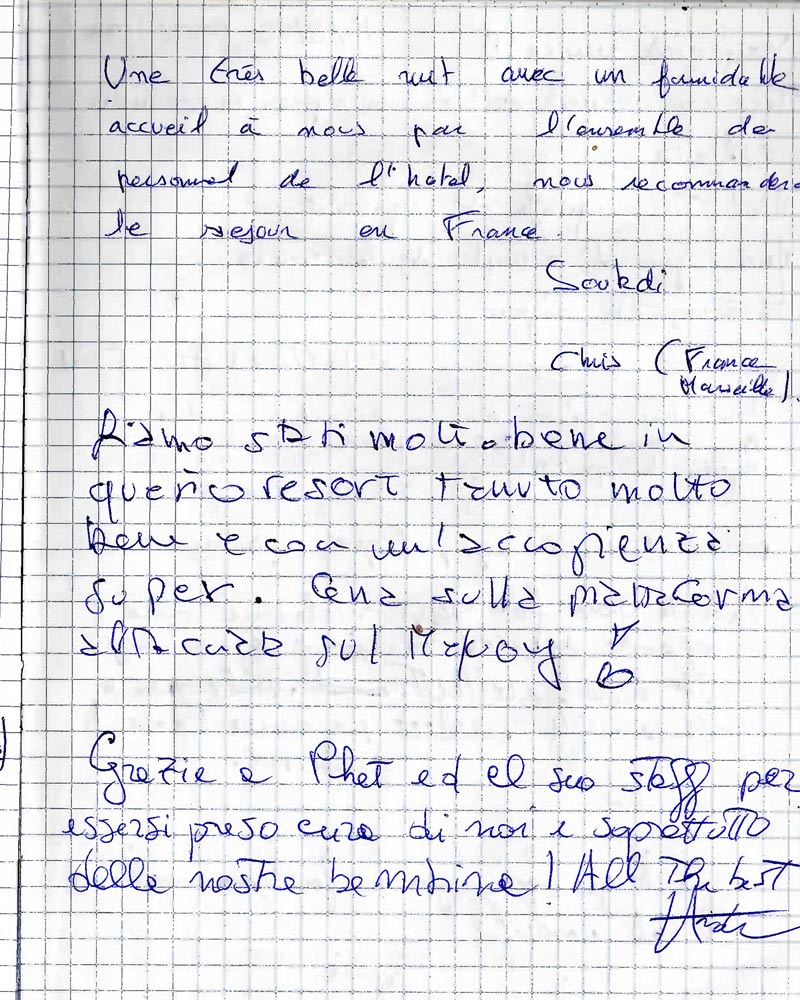 Une très belle nuit avec un formidable
accueil à nous par l'ensemble de
personnel de l'hotel, nous recommander
le sejour en France.
Soukdi
Chris (France
Marseille).
Siamo stati molto bene in
questo resort tenuto molto
bene e con un'accoglienza
super. Cena sulla piattaforma
sul
Grazie a Phet ed el suo staff per
essersi preso cura di noi e soprattutto
delle nostre bambine! All The best